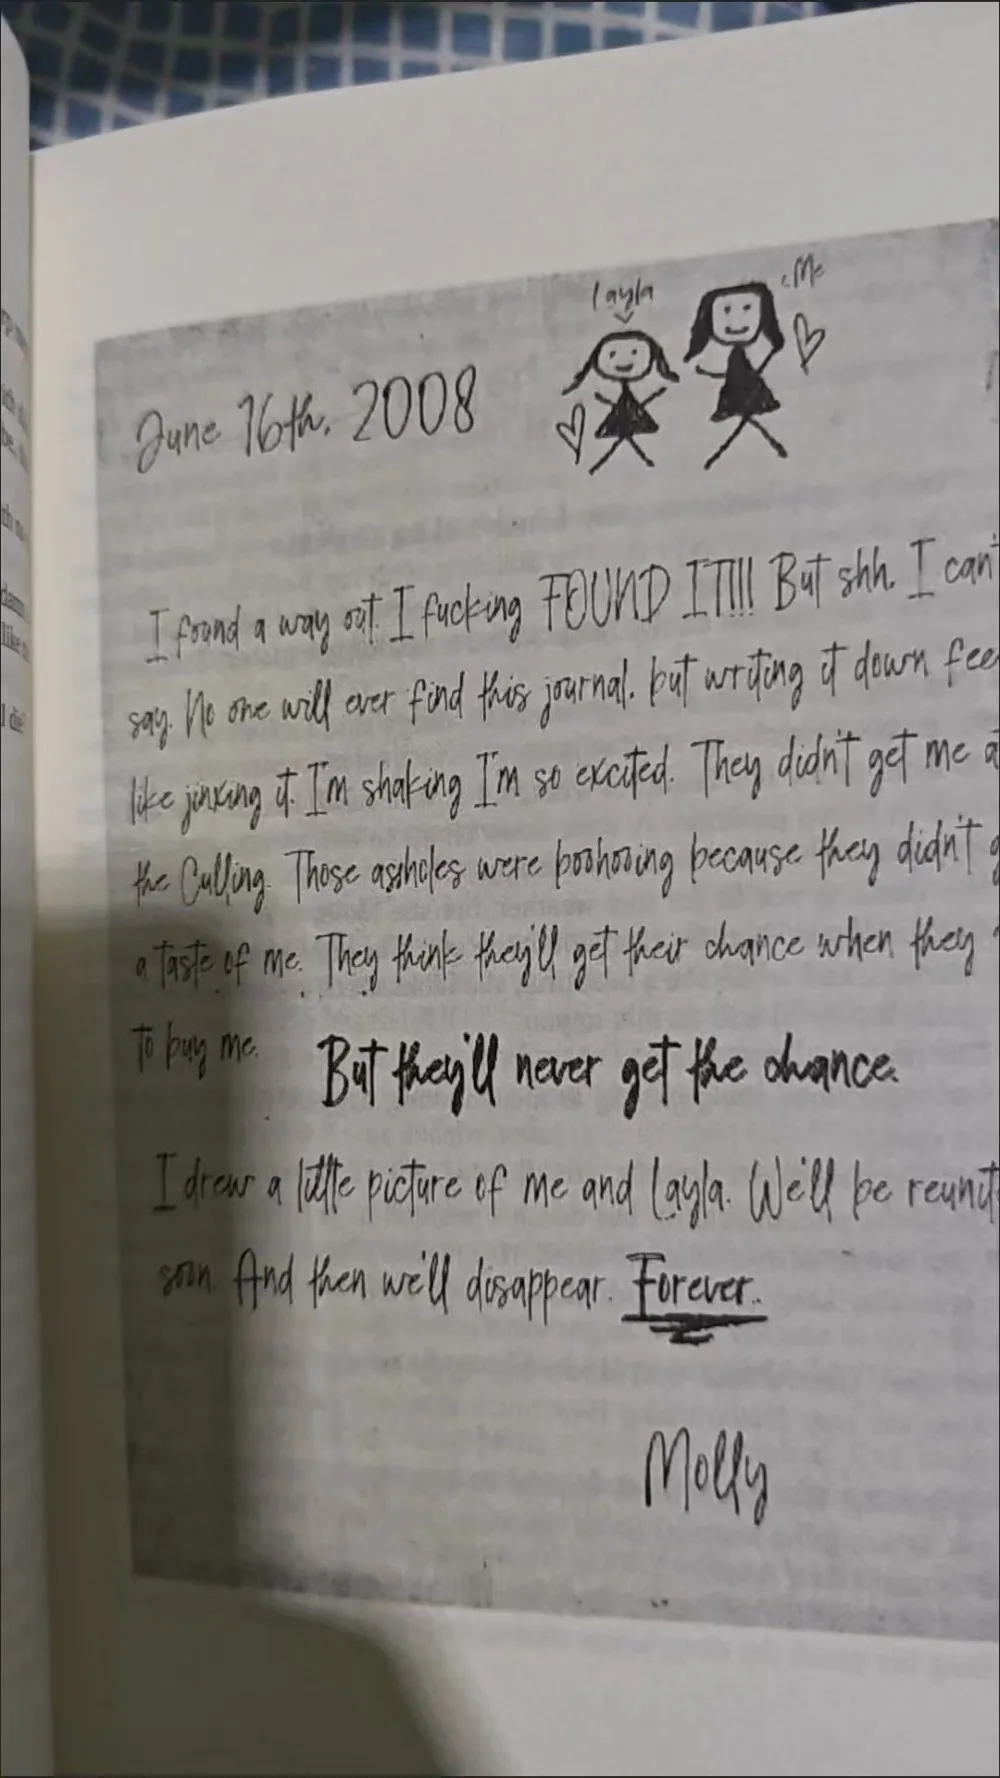 Layla
Me
June 16th, 2008
I found a way out. I fucking FOUND IT!!! But shh. I can't
say. No one will ever find this journal, but writing it down fee
like jinxing it. I'm shaking I'm so excited. They didn't get me a
the Culling. Those assholes were boohooing because they didn't g
a taste of me. They think they'll get their chance when they
to buy me. But they'll never get the chance.
I drew a little picture of me and Layla. We'll be reunit
soon. And then we'll disappear. Forever.
Molly